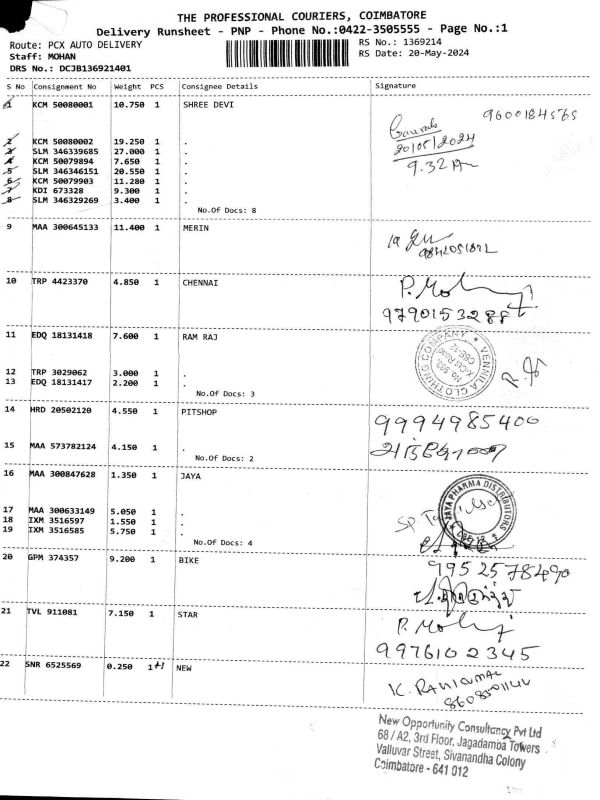 THE PROFESSIONAL COURIERS, COIMBATORE
Delivery Runsheet - PNP - Phone No.:0422-3505555 - Page No.:1
Route: PCX AUTO DELIVERY
RS No.: 1369214
Staff: MOHAN
RS Date: 20-May-2024
DRS No.: DCJB136921401
S No Consignment No Weight PCS Consignee Details Signature
1 KCM 50080001 10.750 1 SHREE DEVI
9600184565
2 KCM 50080002 19.250 1 .
20/05/2024
3 SLM 346339685 27.000 1 .
4 KCM 50079894 7.650 1 .
9.32
5 SLM 346346151 20.550 1 .
6 KCM 50079903 11.280 1 .
7 KDI 673328 9.300 1 .
8 SLM 346329269 3.400 1 .
No.Of Docs: 8
9 MAA 300645133 11.400 1 MERIN
10 TRP 4423370 4.850 1 CHENNAI
P. Moh
11 EDQ 18131418 7.600 1 RAM RAJ
VENNILA CLOTHING COMPANY
CBE-12
12 TRP 3029062 3.000 1 .
13 EDQ 18131417 2.200 1 .
No.Of Docs: 3
14 HRD 20502120 4.550 1 PITSHOP
9994985400
15 MAA 573782124 4.150 1 .
No.Of Docs: 2
16 MAA 300847628 1.350 1 JAYA
JAYA PHARMA DISTRIBUTORS
17 MAA 300633149 5.050 1 .
18 IXM 3516597 1.550 1 .
19 IXM 3516585 5.750 1 .
No.Of Docs: 4
20 GPM 374357 9.200 1 BIKE
9952578490
21 TVL 911081 7.150 1 STAR
P. Moh
9976102345
22 SNR 6525569 0.250 1+1 NEW
New Opportunity Consultancy Pvt Ltd
68 / A2, 3rd Floor, Jagadamba Towers
Valluvar Street, Sivanandha Colony
Coimbatore - 641 012